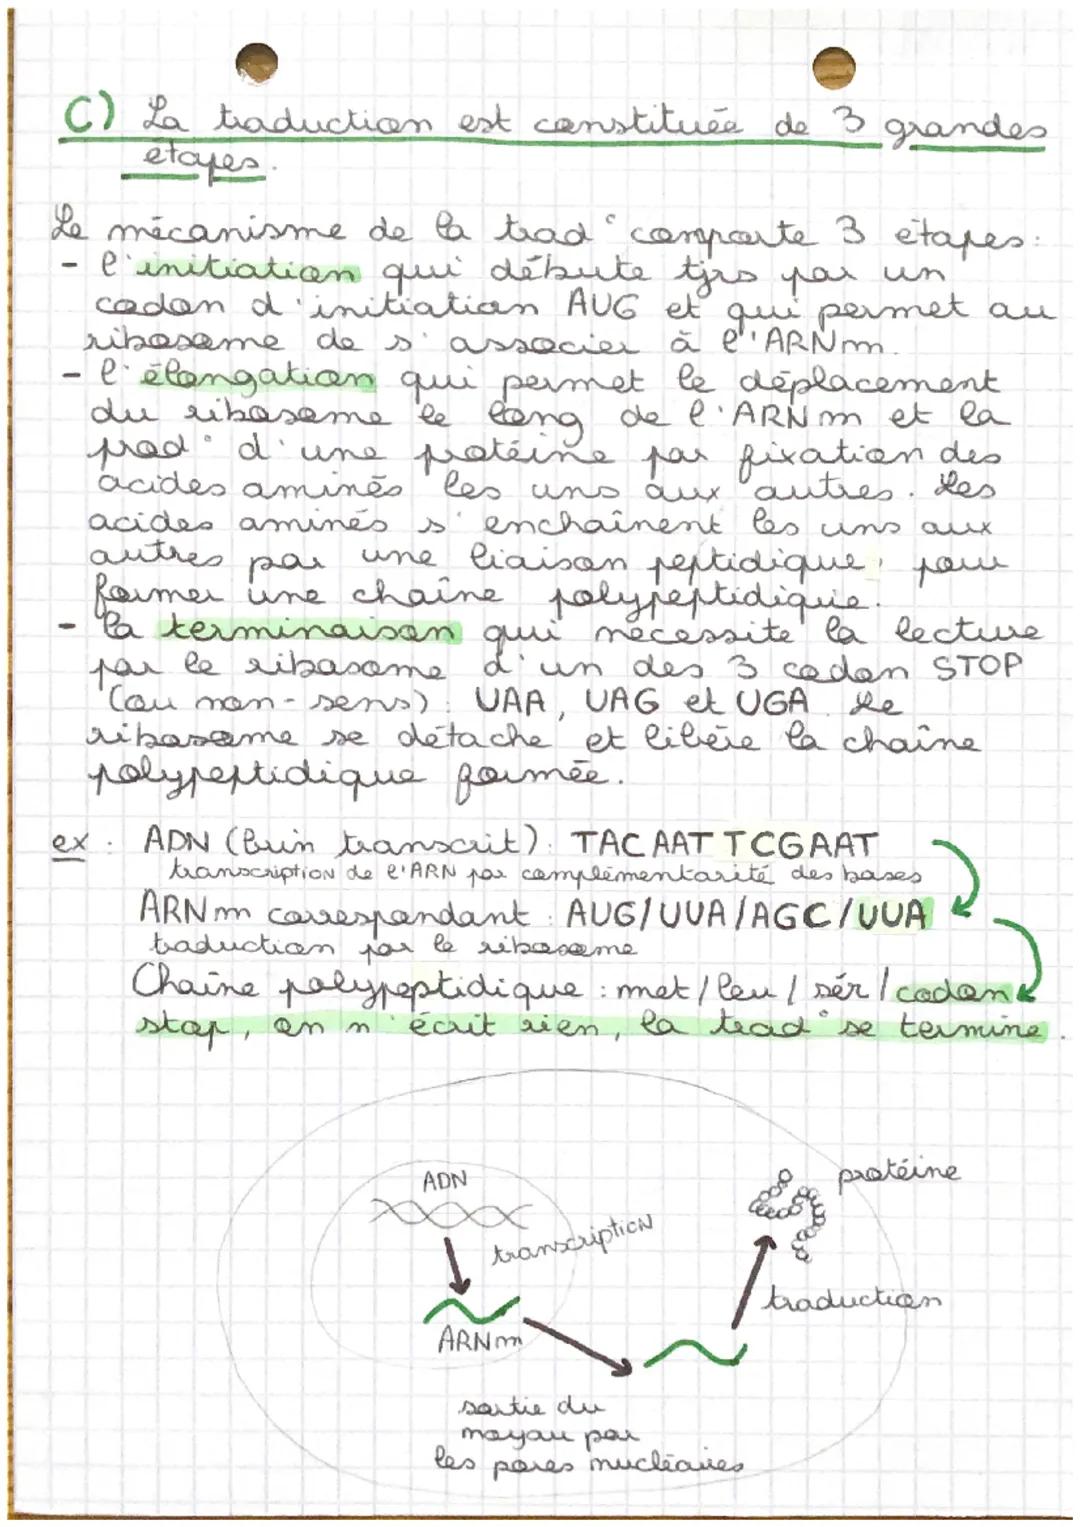 C) La traduction est constituée de 3 grandes
etapes.
Le mécanisme de la trad° comporte 3 étapes :
- l'initiation qui débute tjrs par un
codon d'initiation AUG et qui permet au
ribosome de s'associer à l'ARNm.
- l'élongation qui permet le déplacement
du ribosome le long de l'ARNm et la
prod° d'une protéine par fixation des
acides aminés les uns aux autres. Les
acides aminés s'enchaînent les uns aux
autres par une liaison peptidique, pour
former une chaîne polypeptidique.
- la terminaison qui nécessite la lecture
par le ribosome d'un des 3 codon STOP
(ou non-sens) : UAA, UAG et UGA. Le
ribosome se détache et libère la chaîne
polypeptidique formée.
ex : ADN (brin transcrit) : TAC AAT TCGAAT
transcription de l'ARN par complémentarité des bases
ARNm correspondant : AUG/UUA/AGC/UUA
traduction par le ribosome
Chaîne polypeptidique : met/leu/sér/codon
stop, on n'écrit rien, la trad° se termine.
ADN
protéine
transcription
traduction
ARNm
sortie du
noyau par
les pores nucléaires